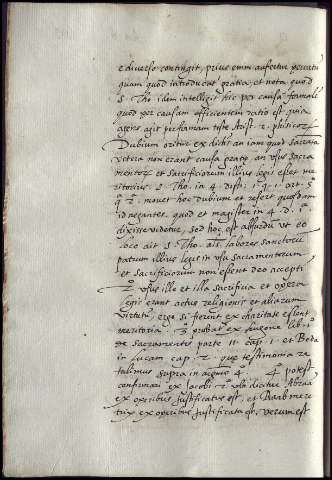 e diverso contingit, prius enim aufertur peccatu
quam quod introducat gratia, et nota quod
S. Tho. idem intelligit hic per causā formalē
quod per causam efficientem ratio est quia
agens agit per formam teste Arist. 2. phisicorū
Dubium oritur ex dictis an iam quod sacrata
vetera non erant causa gratię an usus sacra
mentorū et sacrificiorum illius legis esset me
ritorius. S. Tho. in 4. dist. 1. q. 1. art. 5
q. 2. movet hoc dubium et refert quosdam
id negantes. quod et magister in 4. d. 1.
dixisse videtur, sed hoc est absurdū ut eo
loco ait S. Tho. als. labores sanctorū
patrum illius legis in usu sacramentorum
et sacrificiorum non essent deo accepti
2. usus ille et illa sacrificia et opera
legis erant actus religionis et aliarum
virtutū ergo si fierent ex charitate essent
meritoria. 3. probat ex Hugone lib. 1.
de sacramentis parte 11. cap. 1. et Beda
in Lucam cap. 2. quę testimonia re
tulimus supra in argumē. 4. 4. potest
confirmari ex Jacobi 2. ubi dicitur Abraā
ex operibus justificatus est, et Raab mere
trix ex operibus justificata est, verum est